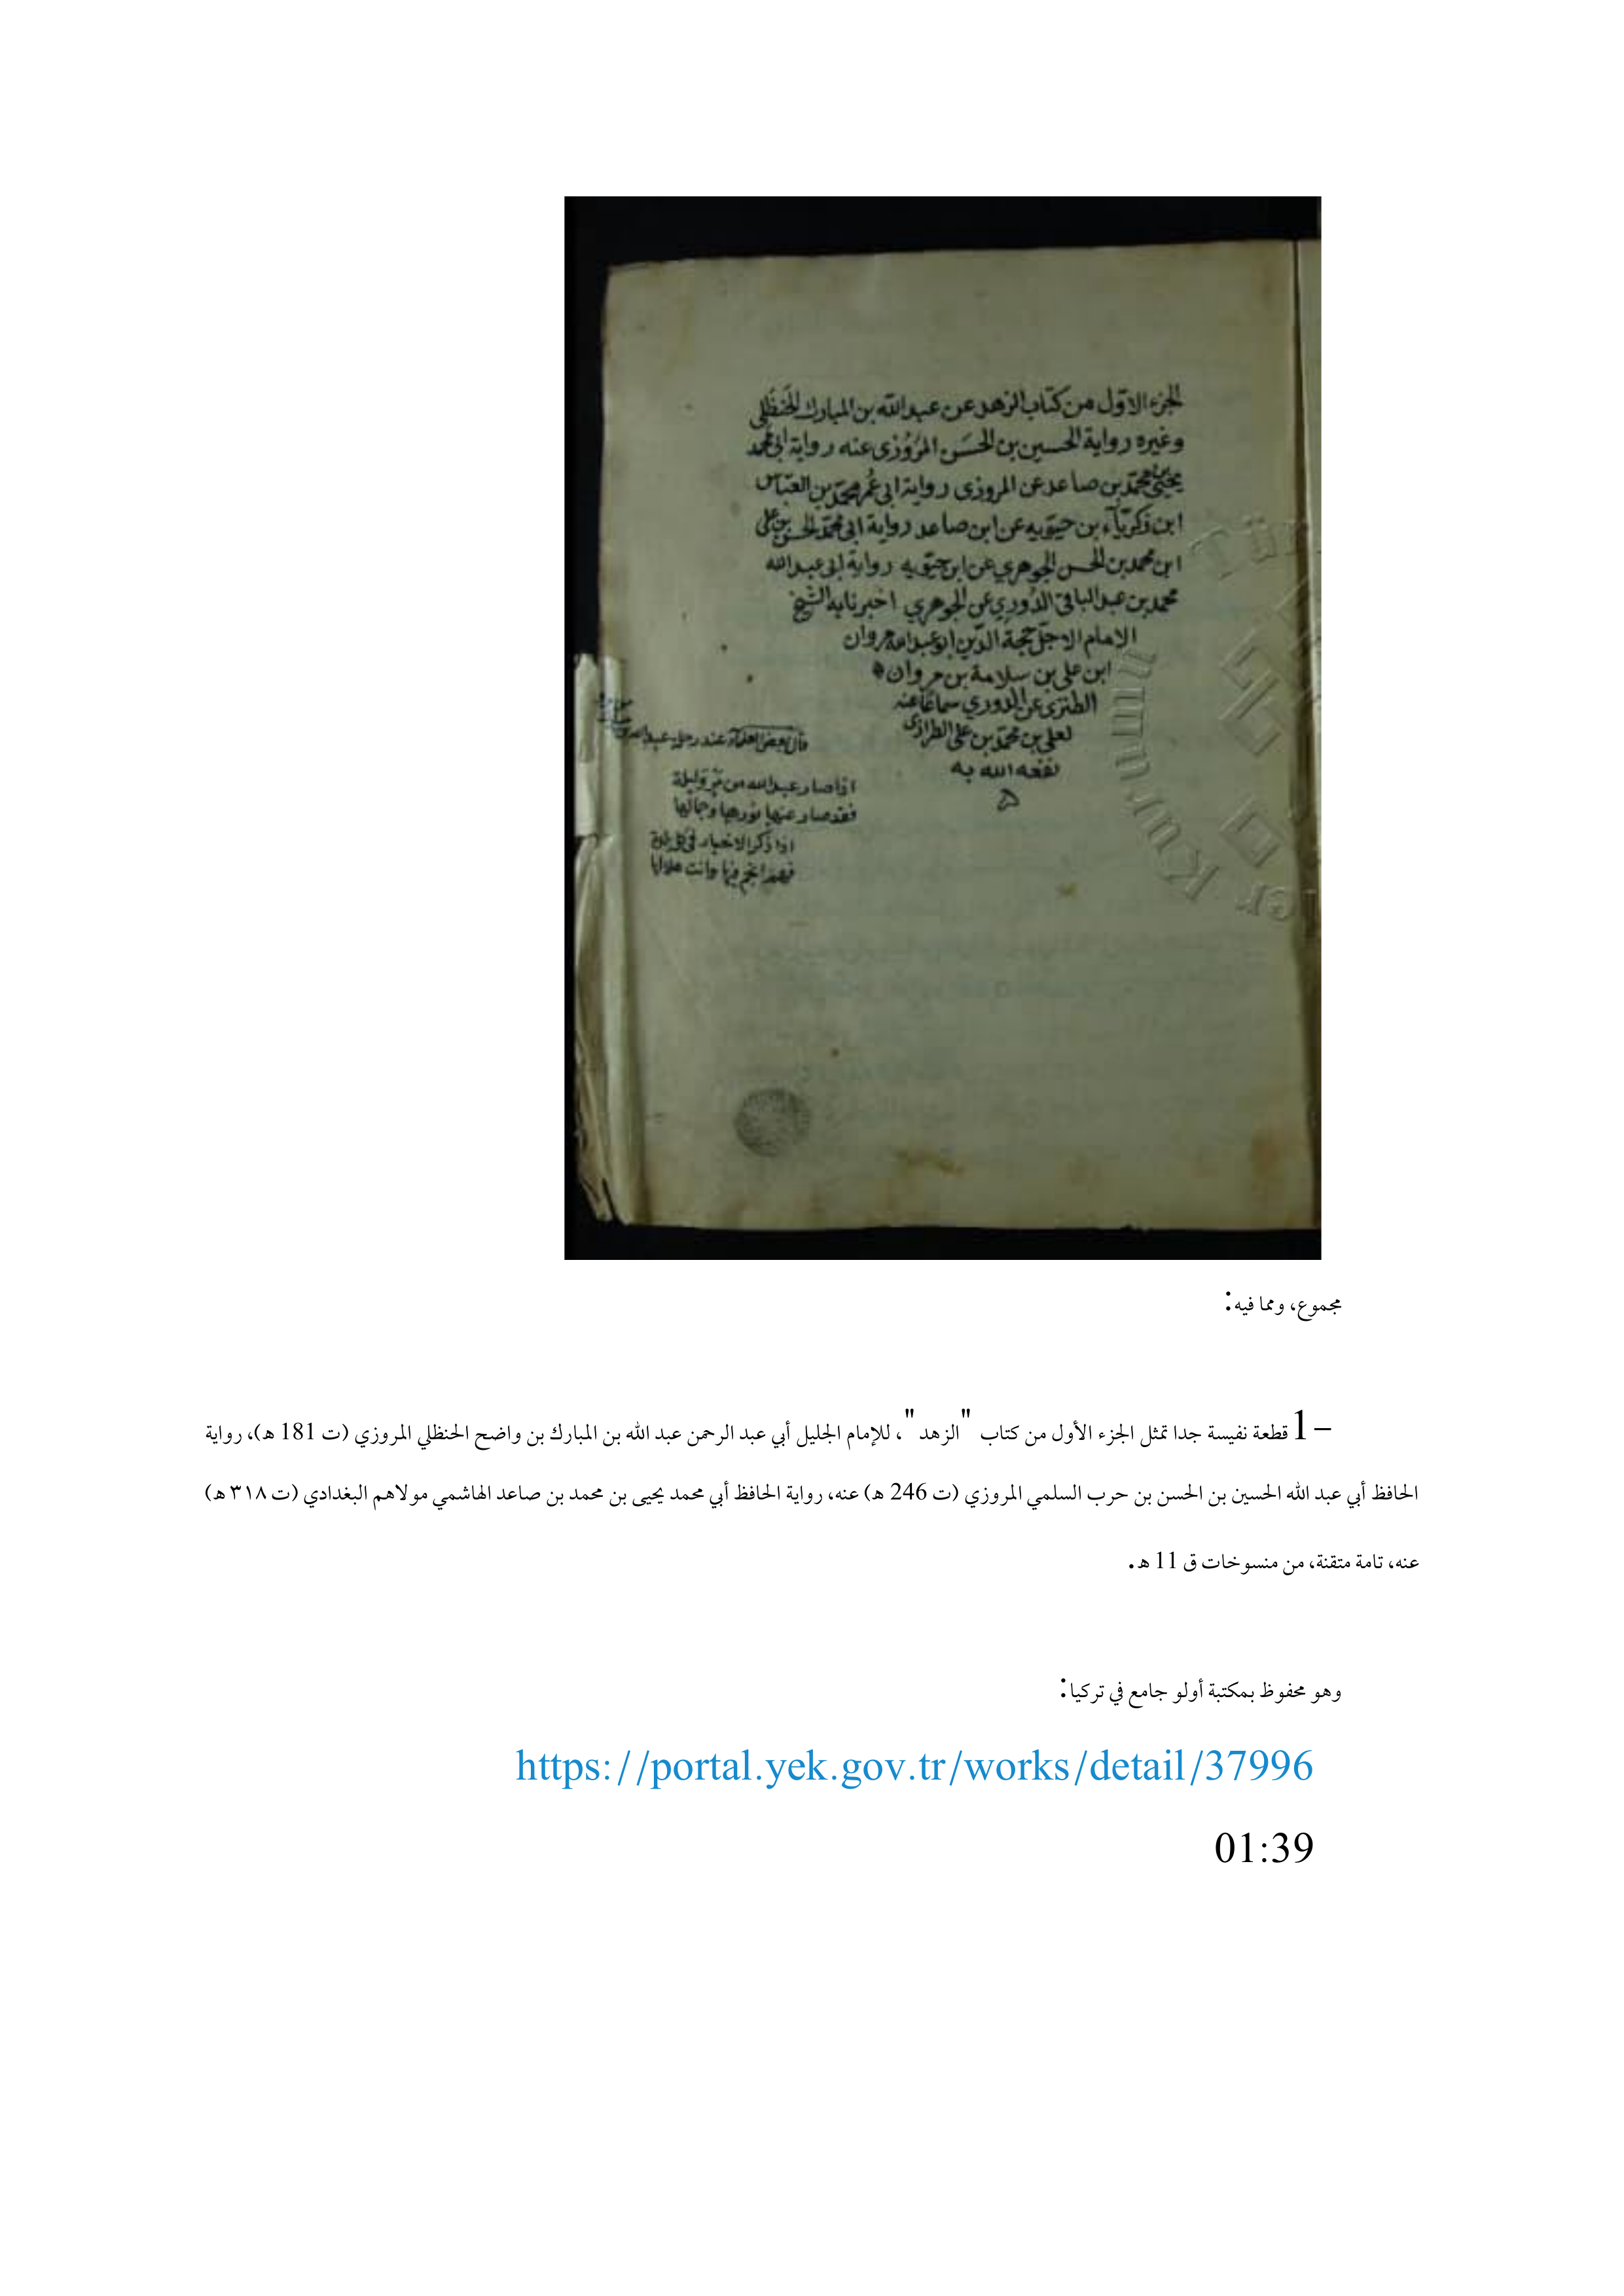 الجزء الاوّل من كتاب الزهد عن عبد الله بن المبارك الحَنظَلي
وغيره رواية الحسين بن الحسَن المرْوَزى عنه رواية ابى محمد
يحيى بن محمّد بن صاعد عن المروزى رواية ابى عُمر محمّد بن العبّاس
ابن زكريّآء بن حيّويه عن ابن صاعد رواية ابى محمّد الحسن بن على
ابن محمد بن الحسن الجوهري عن ابن حيّويه رواية ابى عبد الله
محمد بن عبد الباقى الدّوري عن الجوهري اخبرنا به الشيخ
الامام الاجلّ حجة الدّين ابو عبد الله مروان
ابن على بن سلامة بن مروان
الطنزى عن الدوري سماعًا عنه
لعلى بن محمّد بن على الطرازى
نفعه الله به
قال بعض العلمآء عند رحيل عبد الله
اذا صار عبد الله من مَرْوَ ليلة
فقد صار عنها نورها وجمالها
اذا ذكر الاخيار فى كل بلدة
فهم انجم فيها وانت هلالها
مجموع، ومما فيه:
1– قطعة نفيسة جدا تمثل الجزء الأول من كتاب "الزهد"، للإمام الجليل أبي عبد الرحمن عبد الله بن المبارك بن واضح الحنظلي المروزي (ت 181 هـ)، رواية
الحافظ أبي عبد الله الحسين بن الحسن بن حرب السلمي المروزي (ت 246 هـ) عنه، رواية الحافظ أبي محمد يحيى بن محمد بن صاعد الهاشمي مولاهم البغدادي (ت ٣١٨ هـ)
عنه، تامة متقنة، من منسوخات ق 11 هـ.
وهو محفوظ بمكتبة أولو جامع في تركيا:
https://portal.yek.gov.tr/works/detail/37996
01:39